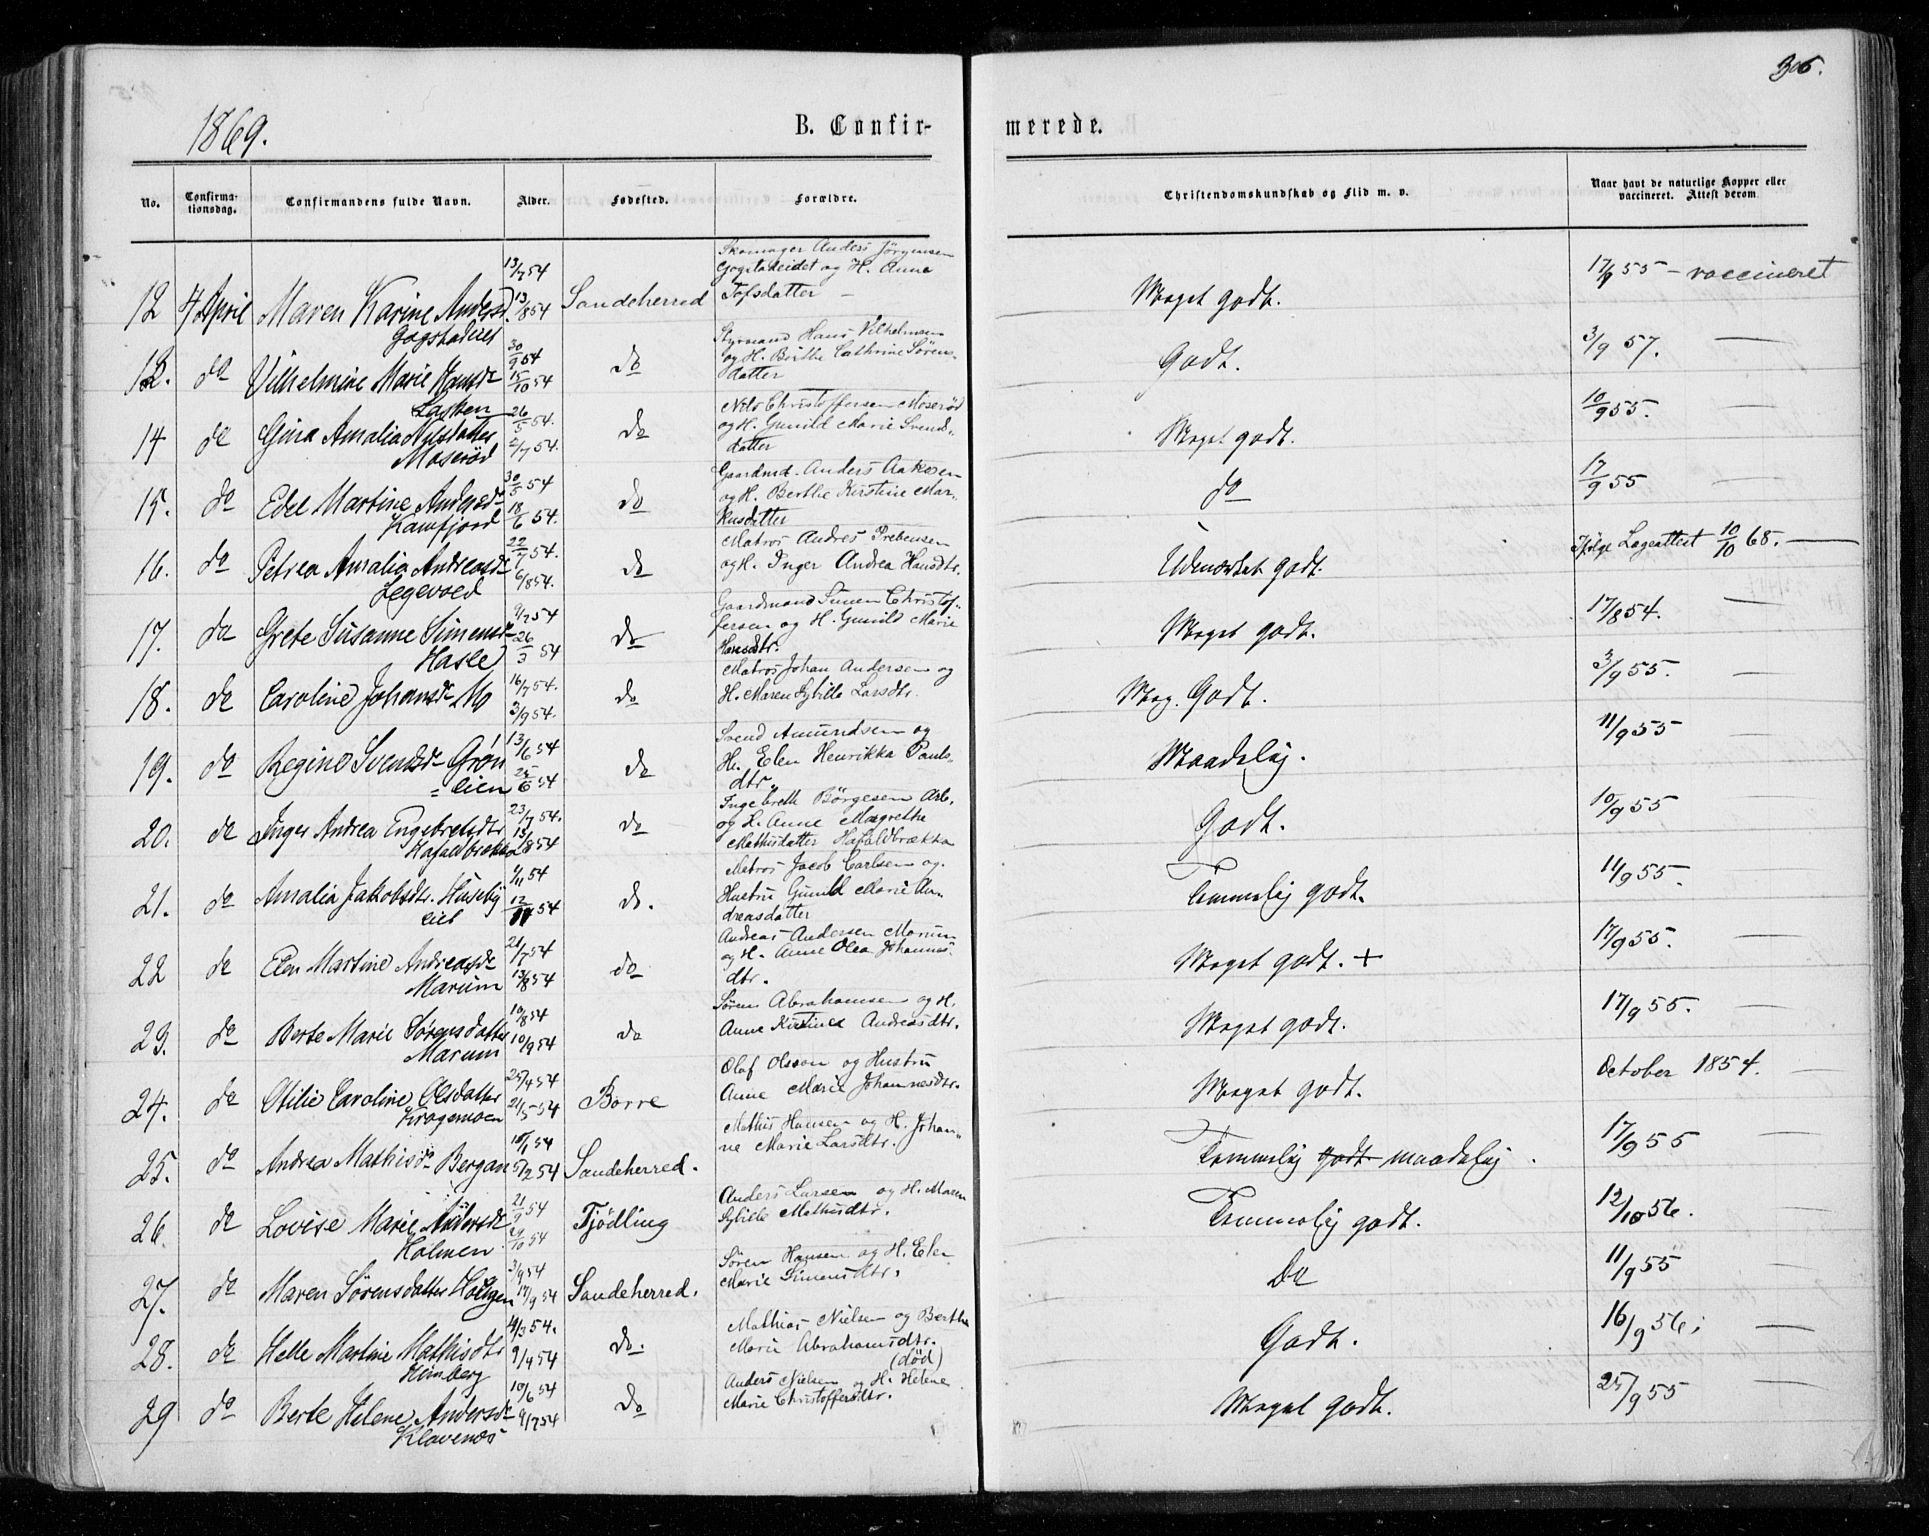 306.
1869.
B. Confir-
merede.
No.
Confirma-
tionsdag.
Confirmandens fulde Navn.
Alder.
Fødested.
Forældre.
Christendomskundskab og Flid m. v.
Naar havt de naturlige Kopper eller
vaccineret. Attest derom
12 4 April Maren Karine Andersd. 13/7 54 13/8 54 Sandeherred
Gogstadeiet
Skomager Anders Jörgensen
Gogstadeidet og H. Anne
Tofsdatter –
Meget godt. 17/9 55 – vaccineret
13. do Vilhelmine Marie Hansdr 30/9 54 15/10 54 do
Lasken
Styrmand Hans Vilhelmsen
og H. Birthe Cathrine Sörens-
datter
Godt. 3/9 57. —
14 do Gina Amalia Nilsdatter 26/5 54. 2/7 54. do
Moserød
Nils Christoffersen Moserød
og H. Gunild Marie Svends-
datter
Meget godt. 10/9 55. —
15. do Edel Martine Andersdr 30/5 54 18/6 54. do
Kamfjord
Gaardmd. Anders Aakesen
og H. Berthe Kirstine Mar-
kusdatter
do 17/9 55 —
16. do Petrea Amalia Andreasdr 22/7 54. 6/8 54. do
Legevoed
Matros Andres Prebensen
og H. Inger Andrea Hansdtr.
Udmærket godt. Ifølge Lægeattest 10/10 68. —
17. do Grete Susanne Simensdr 9/2 54 26/3 54 do
Hasle
Gaardmand Simen Christof-
fersen og H. Gunild Marie
Hansdtr.
Meget godt. 17/8 54. —
18. do Caroline Johansdr Mo 16/7 54. 3/9 54. do
Matros Johan Andersen og
H. Maren Sybille Larsdtr.
Meg. Godt. 3/9 55. —
19. do Regine Svendsdr Grön 13/6 54 25/6 54 do
= lien
Svend Amundsen og
H. Elen Henrikka Pauls-
dtr.
Maadelig. 11/9 55 —
20. do Inger Andrea Engebretsdtr 23/7 54. 13/8 54 do
Hafaldbrækka
Ingebreth Börgesen Arb.
og H. Anne Margrethe
Mathisdatter Hafaldbrækka
Godt. 10/9 55 —
21. do Amalia Jakobsdtr. Huseby 1/11 54 12/11 54 do.
eiet
Matros Jacob Carlsen og
Hustru Gunild Marie An-
dreasdatter
Temmelig godt. 11/9 55. —
22 do Elen Martine Andreasdr 21/7 54 13/8 54 do
Marum
Andreas Andersen Marum
og H. Anne Olea Johannes-
dtr.
Meget godt. + 17/9 55. —
23. do Berte Marie Sörensdatter 10/8 54 10/9 54 do
Marum
Sören Abrahamsen og H.
Anne Kirstine Andreasdtr.
Meget godt. 17/9 55. —
24. do Otilie Caroline Olsdatter 25/4 54 21/5 54 Borre
Kragemoen
Olaf Olsson og Hustru
Anne Marie Johannesdtr.
Meget godt. October 1854. —
25. do Andrea Mathisdr Bergan 15/1 54 5/2 54 Sandeherred.
Mathis Hansen og H. Johan-
ne Marie Larsdtr.
Temmelig godt maadelig. 17/9 55 —
26. do Lovise Marie Andersdr 21/9 54 29/10 54 Tjödling
Holmen
Anders Larsen og H. Maren
Sybille Mathisdtr.
Temmelig godt. 12/10 56. —
27. do Maren Sörensdatter Hougen 3/9 54 17/9 54 Sandeherred.
Sören Hansen og H. Elen
Marie Simensdtr.
Do 11/9 55 —
28. do Helle Martine Mathisdtr 14/3 54. 9/4 54 do.
Himberg
Mathias Nielsen og Berthe
Marie Abrahamsdtr.
(död)
Godt. 16/9 56; —
29 do Berte Helene Andersdr 10/6 54 9/7 54 do
Klavenæs
Anders Nielsen og H. Helene
Marie Christoffersdtr.
Meget godt. 25/9 55 —